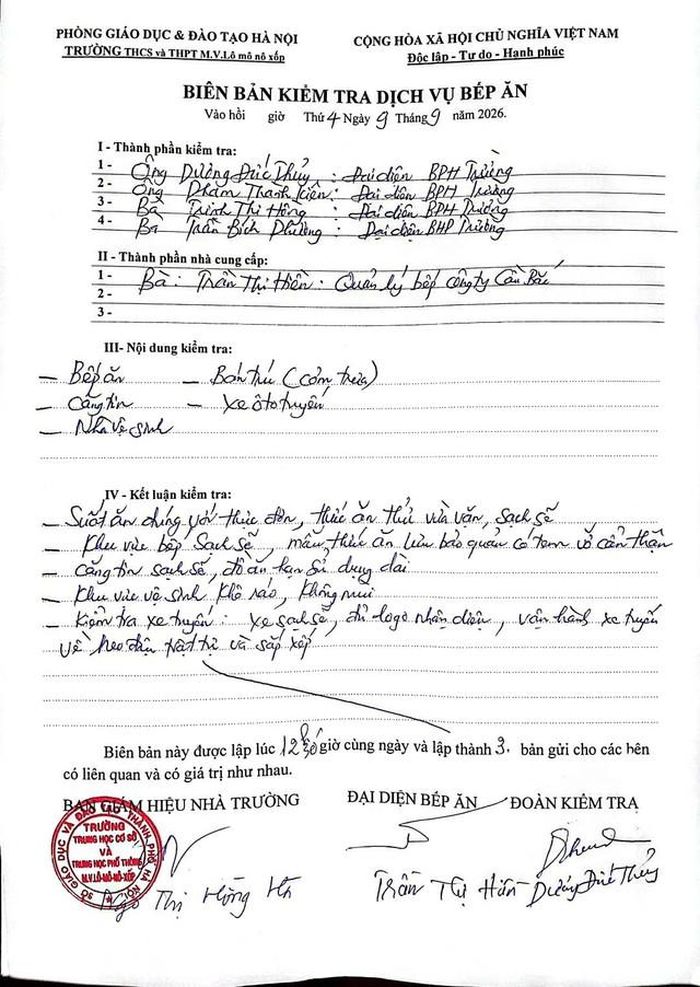 PHÒNG GIÁO DỤC & ĐÀO TẠO HÀ NỘI
TRƯỜNG THCS và THPT M.V.Lô mô nô xốp
CỘNG HÒA XÃ HỘI CHỦ NGHĨA VIỆT NAM
Độc lập - Tự do - Hạnh phúc
BIÊN BẢN KIỂM TRA DỊCH VỤ BẾP ĂN
Vào hồi giờ Thứ 4 Ngày 9 Tháng 9 năm 2026.
I - Thành phần kiểm tra:
1 - Ông Dương Đức Thủy : Đại diện BPH Trường
2 - Ông Phạm Thành Kiên : Đại diện BPH Trường
3 - Bà Trịnh Thị Hồng : Đại diện BPH Trường
4 - Bà Trần Bích Phường : Đại diện BHP Trường
II - Thành phần nhà cung cấp:
1 - Bà : Trần Thị Hiền : Quản lý bếp công ty Cần Bắc
2 -
3 -
III- Nội dung kiểm tra:
- Bếp ăn - Bán trú (cơm trưa)
- Căng tin - Xe ôtô tuyến
- Nhà vệ sinh
IV - Kết luận kiểm tra:
- Suất ăn đúng với thực đơn, thức ăn thử vừa vặn, sạch sẽ
- Khu vực bếp sạch sẽ, mẫu thức ăn lưu bảo quản có tem vở cẩn thận
- Căng tin sạch sẽ, đồ ăn hạn sử dụng dài
- Khu vực vệ sinh khô ráo, không mùi
- Kiểm tra xe tuyến : xe sạch sẽ, đủ logo nhận diện, vận hành xe tuyến
về theo trật tự và sắp xếp
Biên bản này được lập lúc 12h30 giờ cùng ngày và lập thành 3. bản gửi cho các bên
có liên quan và có giá trị như nhau.
BAN GIÁM HIỆU NHÀ TRƯỜNG
ĐẠI DIỆN BẾP ĂN
ĐOÀN KIỂM TRA
SỞ GIÁO DỤC VÀ ĐÀO TẠO THÀNH PHỐ HÀ NỘI
TRƯỜNG
TRUNG HỌC CƠ SỞ
VÀ
TRUNG HỌC PHỔ THÔNG
M.V.LÔ-MÔ-NÔ-XỐP
Ngô Thị Hồng Hà
Trần Thị Hiền
Dương Đức Thủy